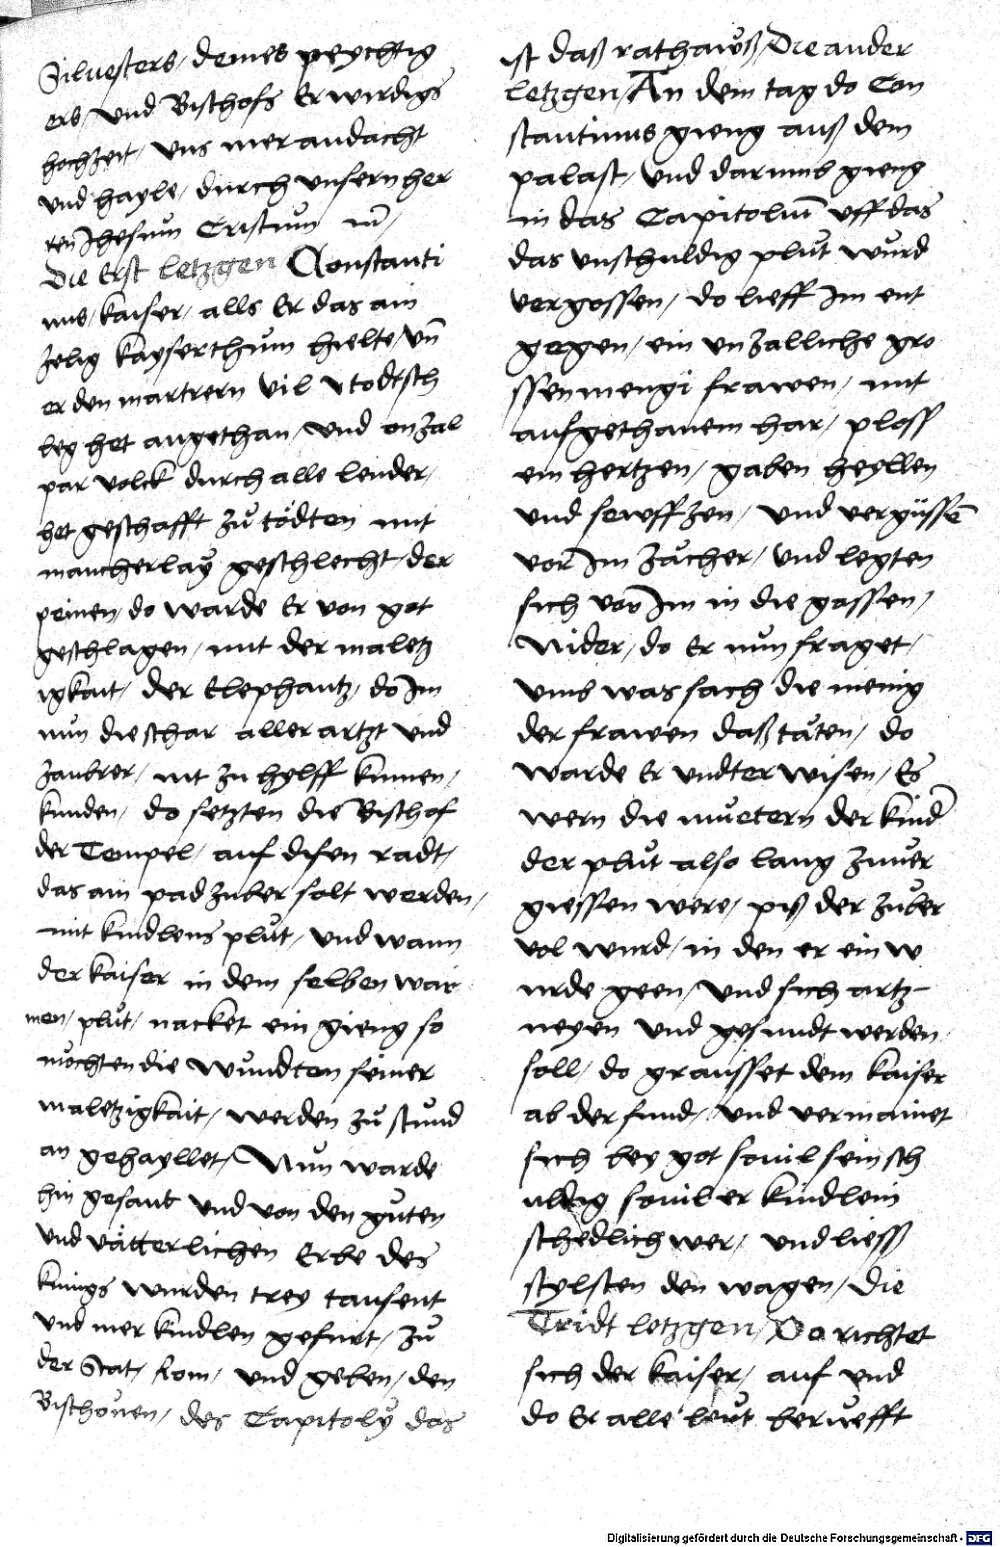 Siluesters, deines peychtig
ers, vnd Bischofs Erwirdigs
hochzeit, vns mer andacht
vnd hayle, durch vnsern her
ren Jhesum Cristum m̄,
Die Erst letzgen Constanti
nus, kaiser, alls Er das ain
zelig kayserthum̄ hielte, vn̄
er den martrern vil vtodtsch
leg het angethan, vnd onzal
par volck durch alle lender,
het geschafft zů tödten mit
mancherlay geschlecht, der
peinen, do warde Er von got
geschlagen, mit der maletz
igkait, der Elephantz, do Jm
nun die schar aller artzt vnd
zaubrer, nit zu hylff kumen,
kunden, do setzten die Bischof
der Tempel, auf disen radt,
das ain pad zuber solt werden,
mit kindlens plůt, vnd wann
der kaiser in dem selben war
men, plůt, nacket ein gieng so
möchten die wundten seiner
maletzigkait, werden zů stund
an gehayllet, Nun warde
hin gesant vnd von den gůten
vnd vätterlichen Erbe des
kunigs wurden trey tausent
vnd mer kindlen gefurt, zů
der Stat, Rom, vnd geben, den
Bischouen, des Capitoly das
ist daß rathauß, Die ander
letzgen, An dem tag do Con
stantinus gieng auß dem
palast, vnd darumb gieng
in das Capitoliū vff das
das vnschuldig plůt wurd
vergossen, do lieff Jm ent
gegen, ein vnzalliche gro
ssen mengi frawen, mit
aufgethanem har, ploss
ein hertzen, gaben heyllen
vnd sewffzen, vnd vergüssē
vor Jm zächer, vnd legten
sich vor Jm in die gassen,
Nider, do Er nun fraget,
vmb was sach die menig
der frawen daß täten, do
warde Er vndterwisen, Es
wern die muetern der kind
der plůt also lang zuuer
giessen were, piß der zuber
vol wurd, in den er ein w
urde geen, vnd sich artz
neyen vnd gesundt werden,
soll, do grausset dem kaiser
ab der sund, vnd vermainet
sich bey got souil sein sch
uldig souil er kindlein
schedlich wer, vnd liess
stylsten den wagen, Die
Tridt letzgen, Do richtet
sich der kaiser, auf vnd
do Er alle leut berůefft
Digitalisierung gefördert durch die Deutsche Forschungsgemeinschaft - DFG